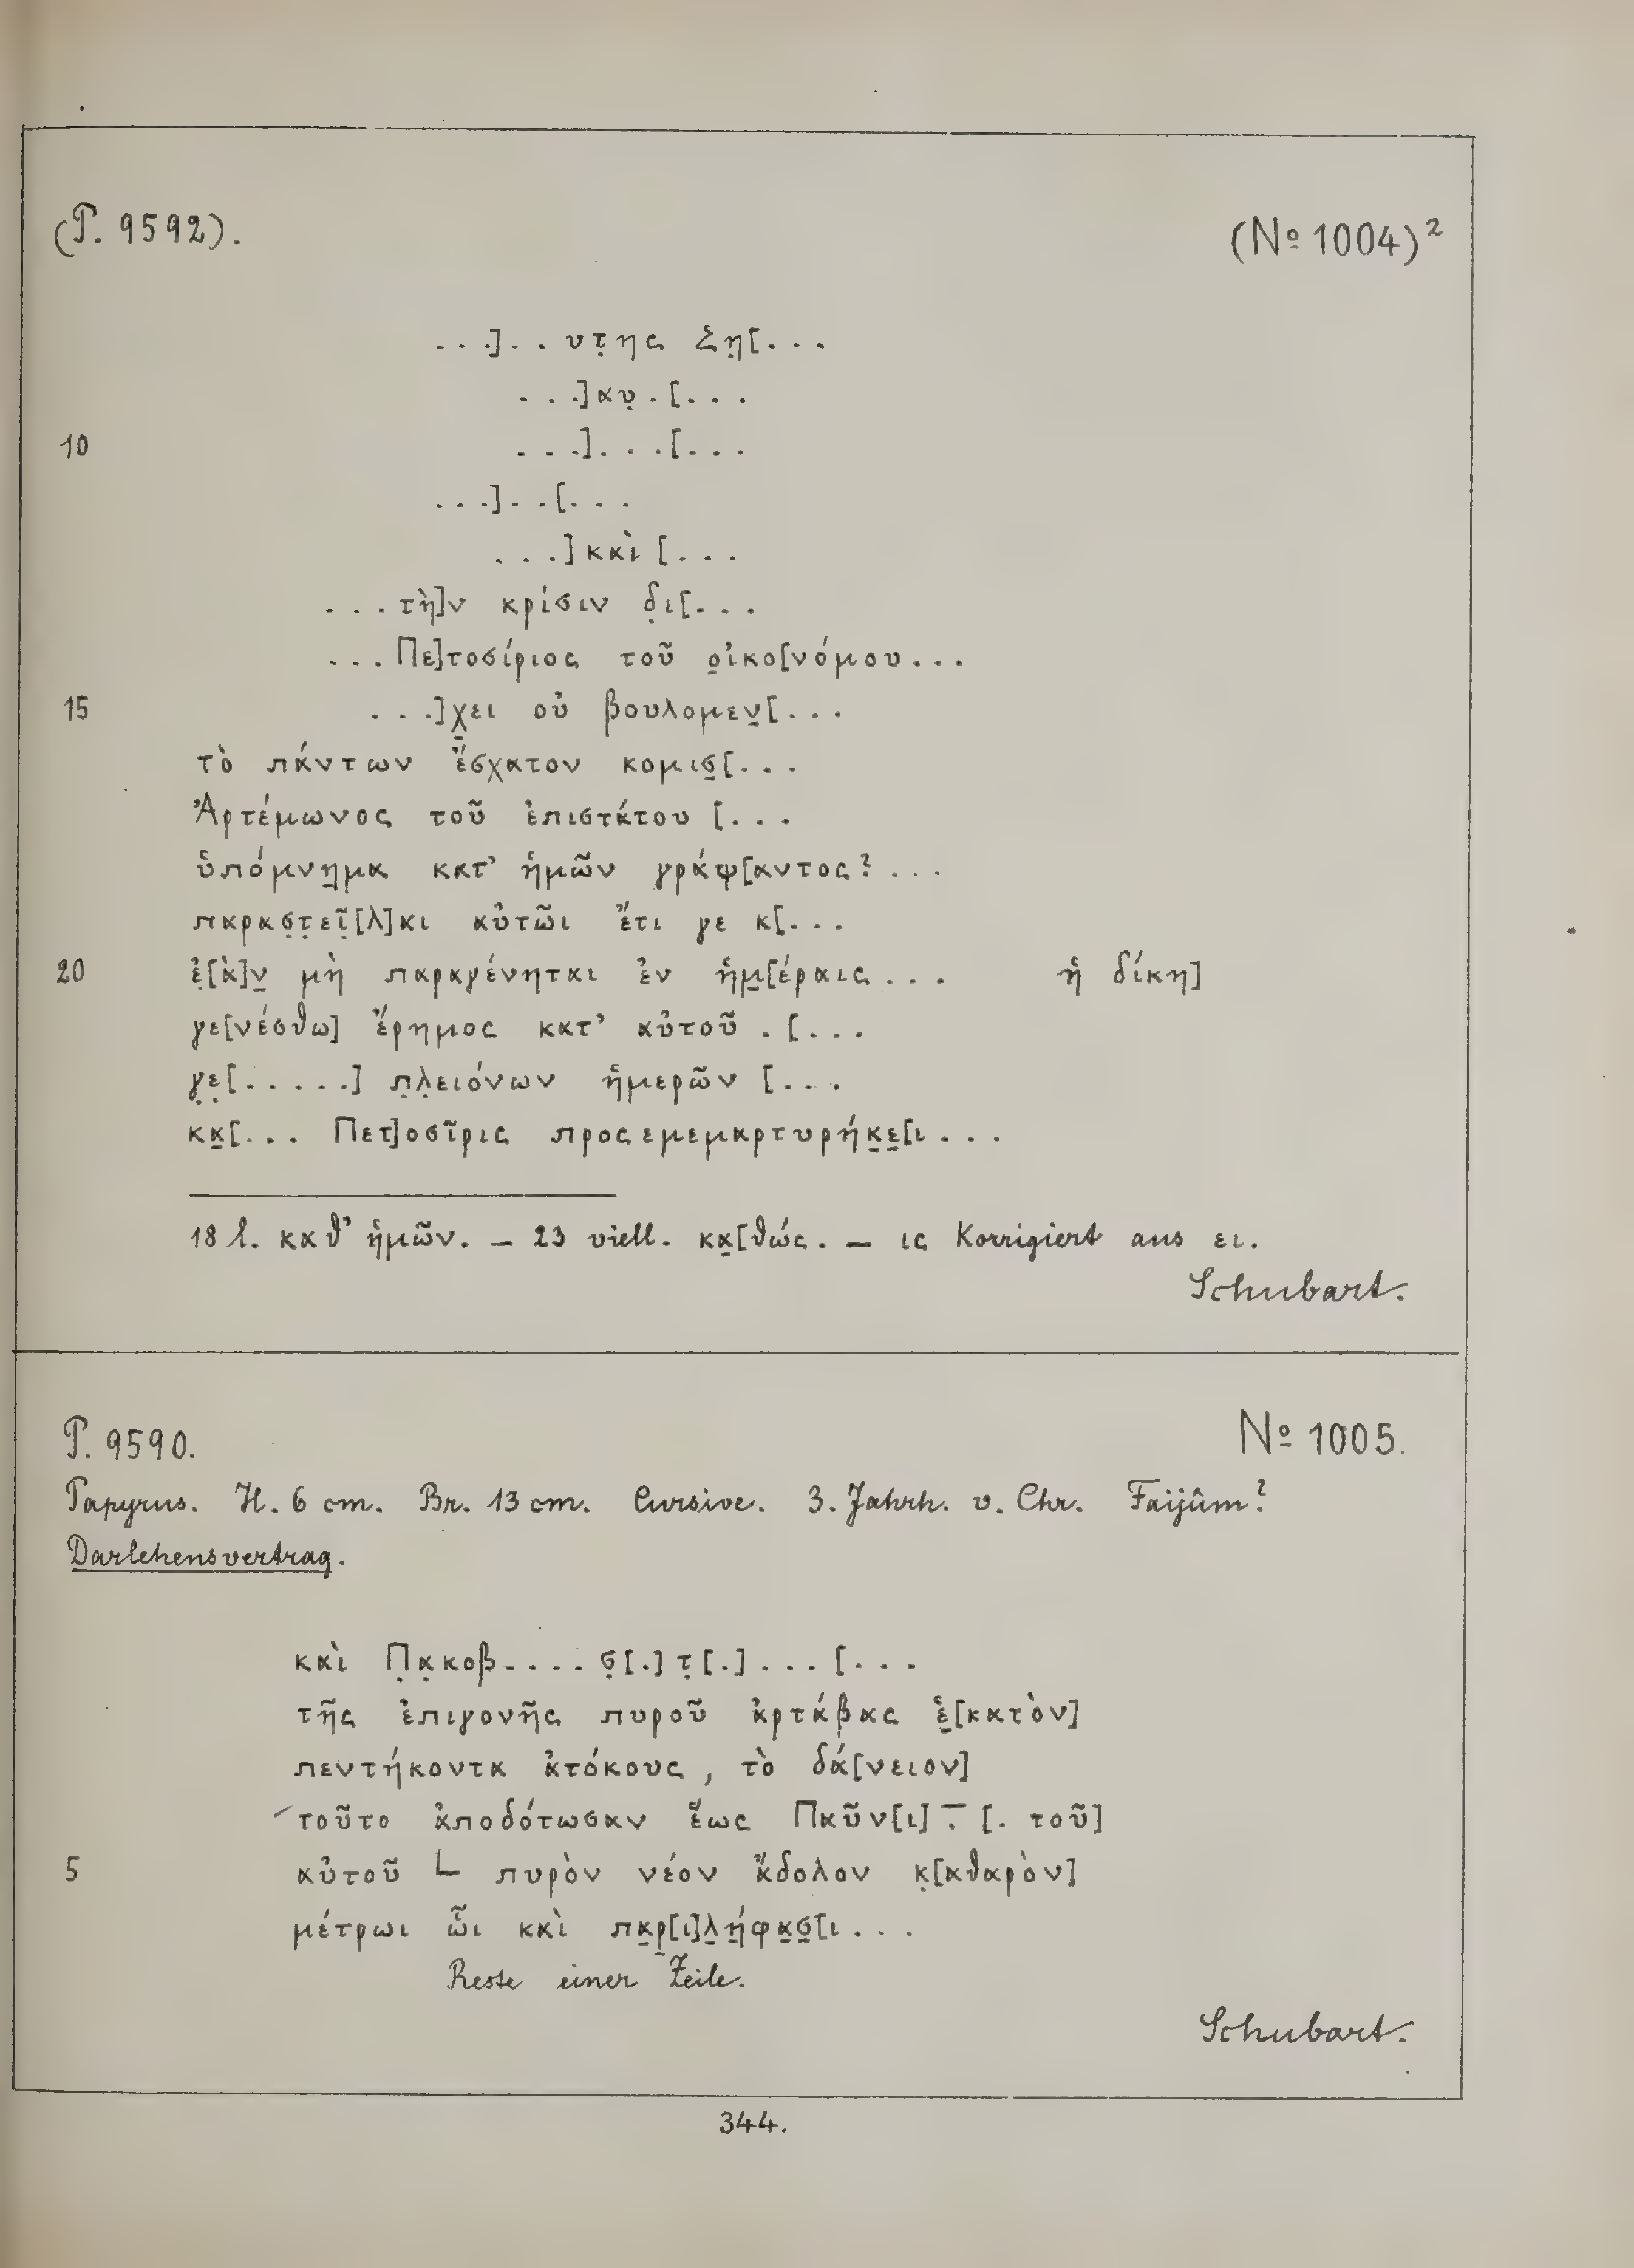 (P. 9592). (No 1004)²
. . .]. . υτ̣ης Ζη̣[. . .
. . .]αυ̣ . [. . .
10 . . .]. . .[. . .
. . .]. . [. . .
. . .] καὶ [. . .
. . . τὴ]ν κρίσιν δ̣ι[. . .
. . . Πε]τοσίριος τοῦ ο̣ἰκο[νόμου . . .
15 . . .]χ̣ει οὐ βουλομεν̣[. . .
τὸ πάντων ἔσχατον κομισ̣[. . .
Ἀρτέμωνος τοῦ ἐπιστάτου [. . .
ὑπόμνη̣μα κατ’ ἡμῶν γράψ[αντος? . . .
παρασ̣τ̣εῖ̣[λ]αι αὐτῶι ἔτι γε κ[. . .
20 ἐ̣[ὰ]ν̣ μὴ παραγένηται ἐν ἡμ̣[έραις . . . ἡ δίκη]
γε[νέσθω] ἔρημος κατ’ αὐτοῦ . [. . .
γ̣ε̣[. . . . .] π̣λ̣ειόνων ἡμερῶν [. . .
κα̣[. . . Πετ]οσῖρις προςεμεμαρτυρήκ̣ε̣[ι . . .
18 l. καθ’ ἡμῶν. – 23 viell. κα̣[θώς. – ις Korrigiert aus ει.
Schubart.
P. 9590. No 1005.
Papyrus. H. 6 cm. Br. 13 cm. Cursive. 3. Jahrh. v. Chr. Faijûm?
Darlehensvertrag.
καὶ Π̣α̣κοβ . . . . σ̣[.] τ̣[.] . . . [. . .
τῆς ἐπιγονῆς πυροῦ ἀρτάβας ἑ̣[κατὸν]
πεντήκοντα ἀτόκους, τὸ δά[νειον]
τοῦτο ἀποδότωσαν ἕως Παῦν[ι] ̅. [. τοῦ]
5 αὐτοῦ L πυρὸν νέον ἄδολον κ̣[αθαρὸν]
μέτρωι ὧι καὶ πα̣ρ̣[ι]λ̣ή̣φα̣σ̣[ι . . .
Reste einer Zeile.
Schubart.
344.